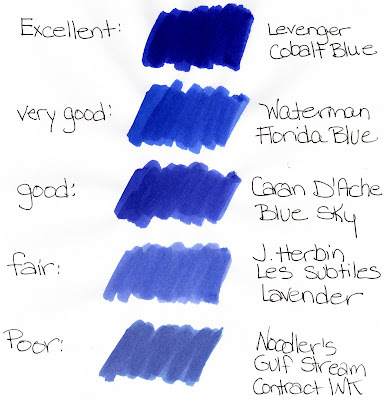 Excellent: Levenger
Cobalt Blue
very good: Waterman
Florida Blue
good: Caran D'Ache
Blue Sky
fair: J. Herbin
Les Subtiles
Lavender
Poor: Noodler's
Gulf Stream
Contract INK